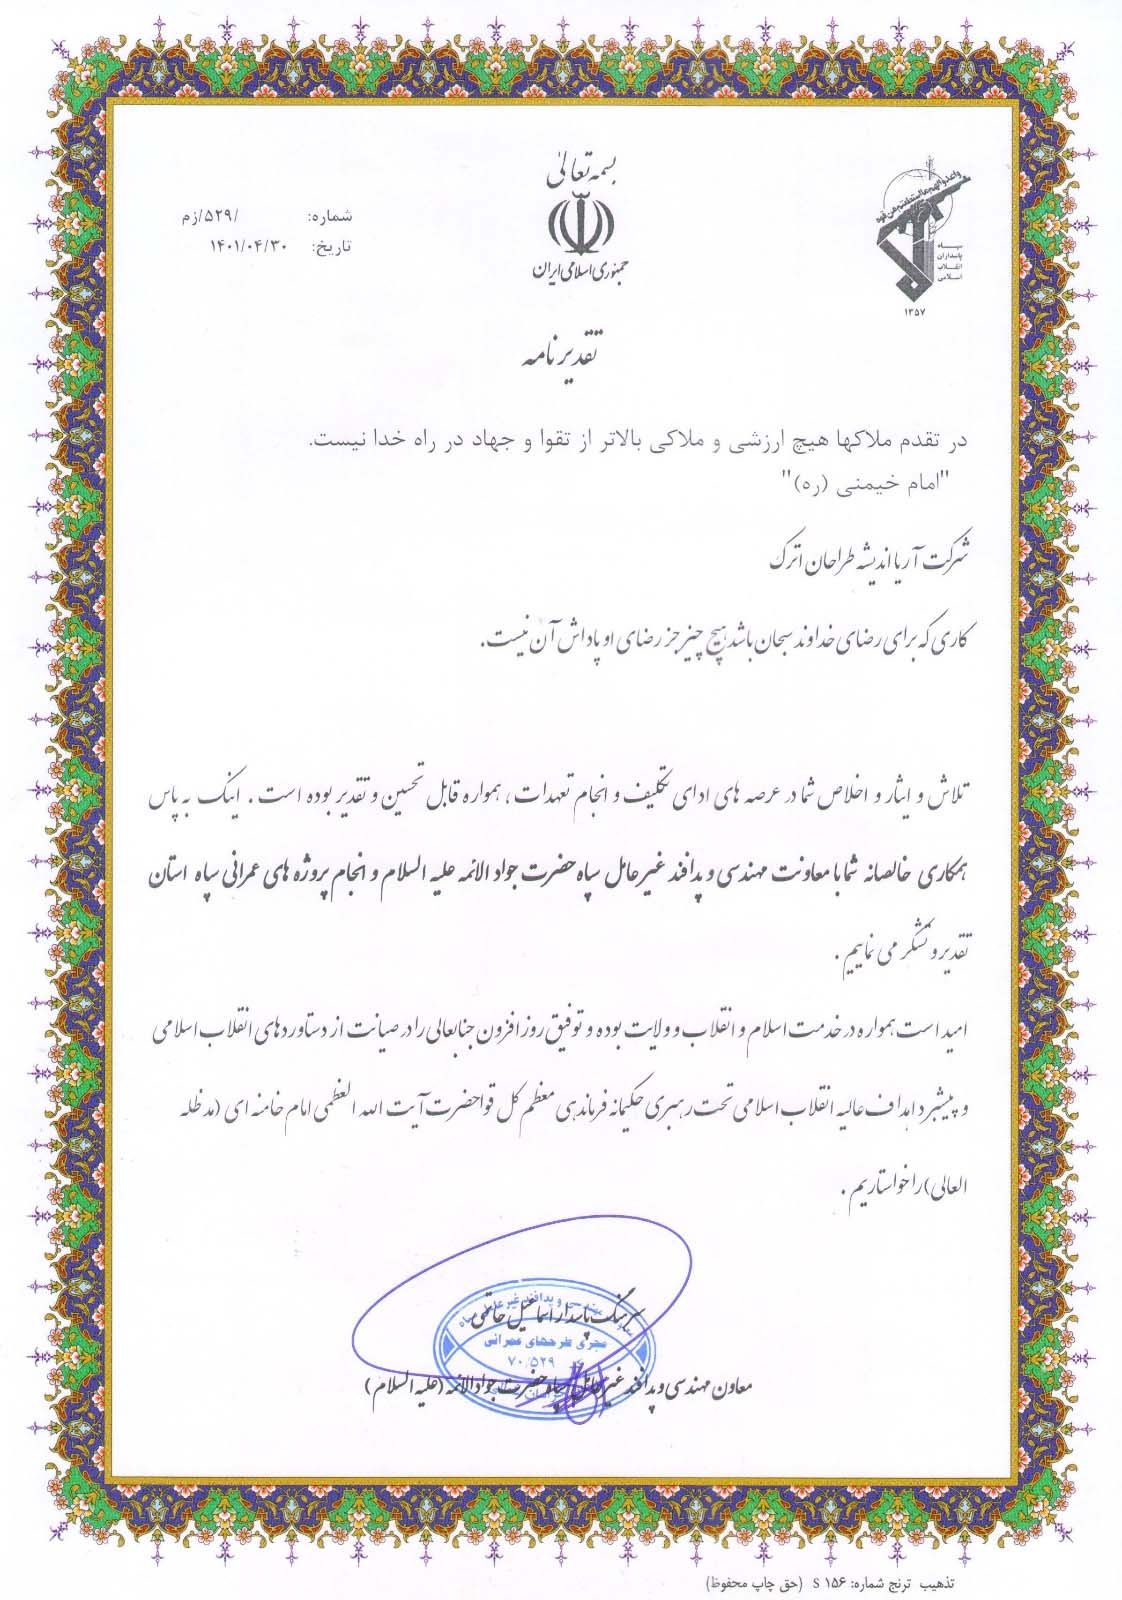 بسمه تعالی
جمهوری اسلامی ایران
سپاه
پاسداران
انقلاب
اسلامی
۱۳۵۷
شماره: /۵۲۹/زم
تاریخ: ۱۴۰۱/۰۴/۳۰
تقدیر نامه
در تقدم ملاکها هیچ ارزشی و ملاکی بالاتر از تقوا و جهاد در راه خدا نیست.
"امام خیمنی (ره)"
شرکت آریا اندیشه طراحان اترک
کاری که برای رضای خداوند سبحان باشد هیچ چیز جز رضای او پاداش آن نیست.
تلاش و ایثار و اخلاص شما در عرصه های ادای تکلیف و انجام تعهدات ، همواره قابل تحسین و تقدیر بوده است . اینک به پاس
همکاری خالصانه شما با معاونت مهندسی و پدافند غیر عامل سپاه حضرت جواد الائمه علیه السلام و انجام پروژه های عمرانی سپاه استان
تقدیر و تشکر می نماییم .
امید است همواره در خدمت اسلام و انقلاب و ولایت بوده و توفیق روز افزون جنابعالی را در صیانت از دستاوردهای انقلاب اسلامی
و پیشبرد اهداف عالیه انقلاب اسلامی تحت رهبری حکیمانه فرماندهی معظم کل قوا حضرت آیت الله العظمی امام خامنه ای (مد ظله
العالی) را خواستاریم .
سرهنگ پاسدار اسماعیل خاتمی
مجری طرحهای عمرانی
۷۰/۵۲۹
معاون مهندسی و پدافند غیر عامل سپاه حضرت جواد الائمه (علیه السلام)
تذهیب ترنج شماره: S ۱۵۶ (حق چاپ محفوظ)